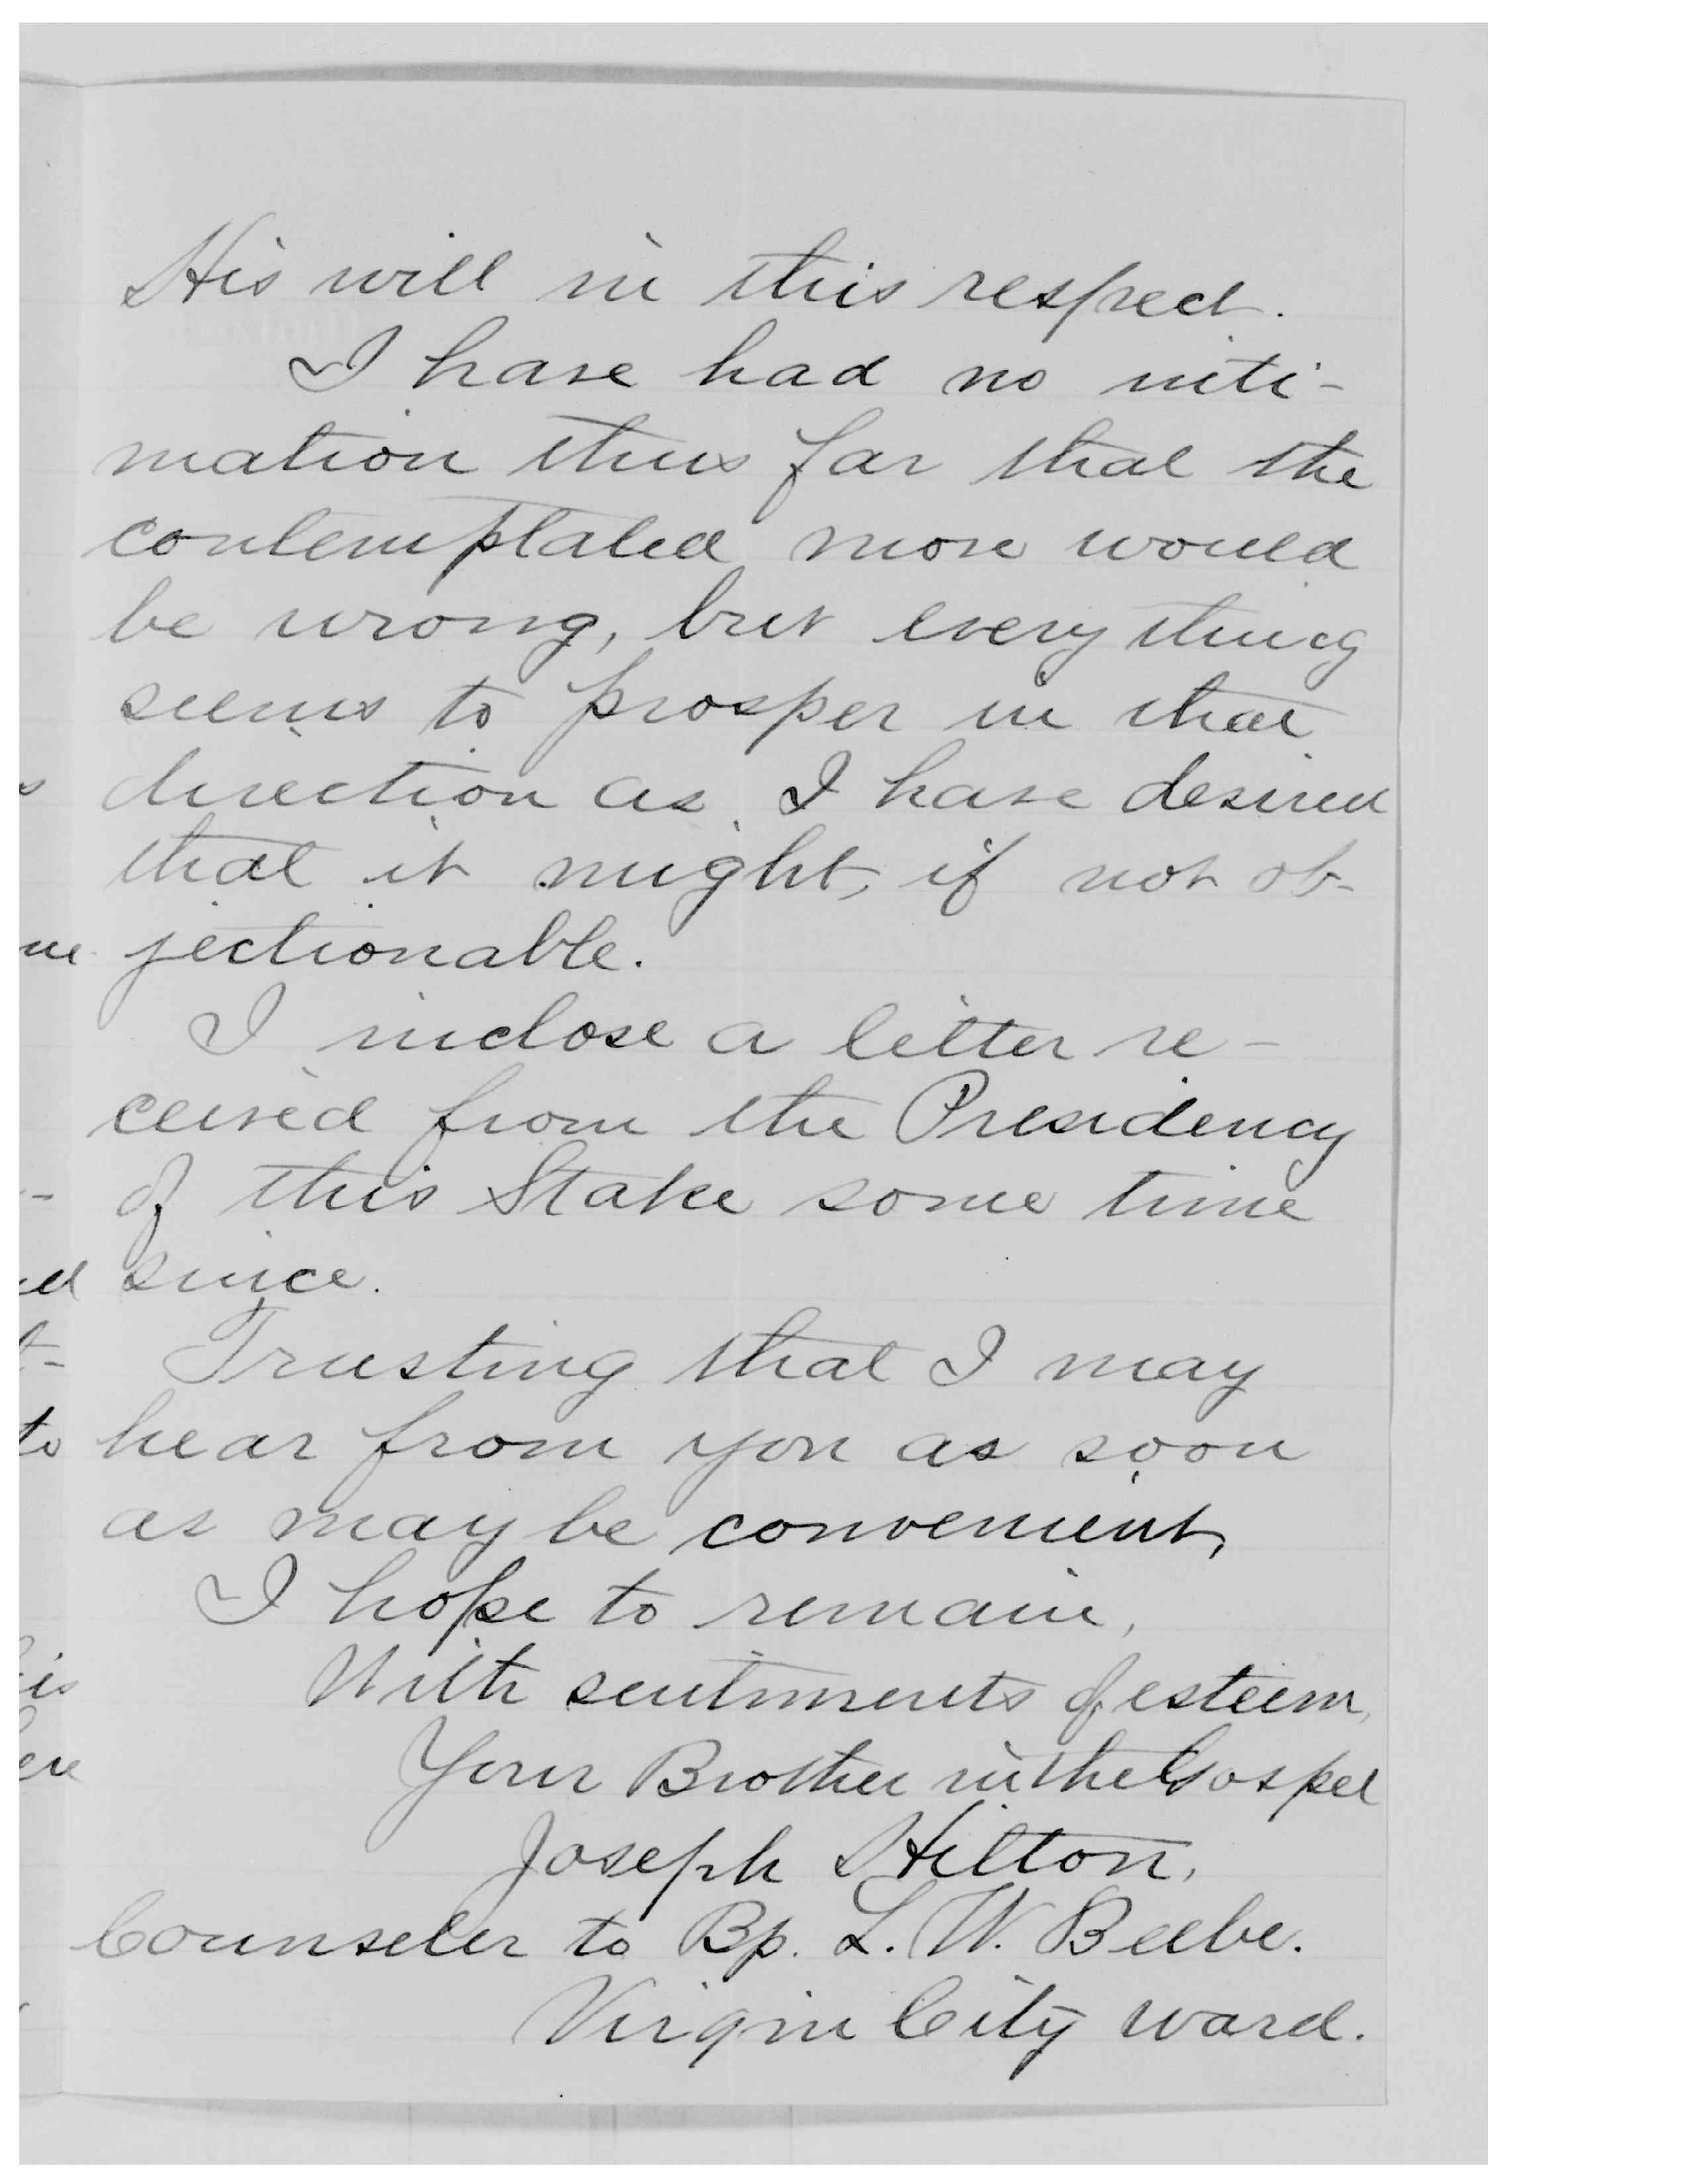 His will in this respect.
I have had no inti-
mation thus far that the
contemplated move would
be wrong, but every thing
seems to prosper in that
direction as I have desired
that it might, if not ob-
jectionable.
I inclose a letter re-
ceived from the Presidency
of this Stake some time
since.
Trusting that I may
hear from you as soon
as may be convenient,
I hope to remain,
With sentiments of esteem,
Your Brother in the Gospel
Joseph Hilton,
Counseler to Bp. L. W. Beebe.
Virgin City ward.